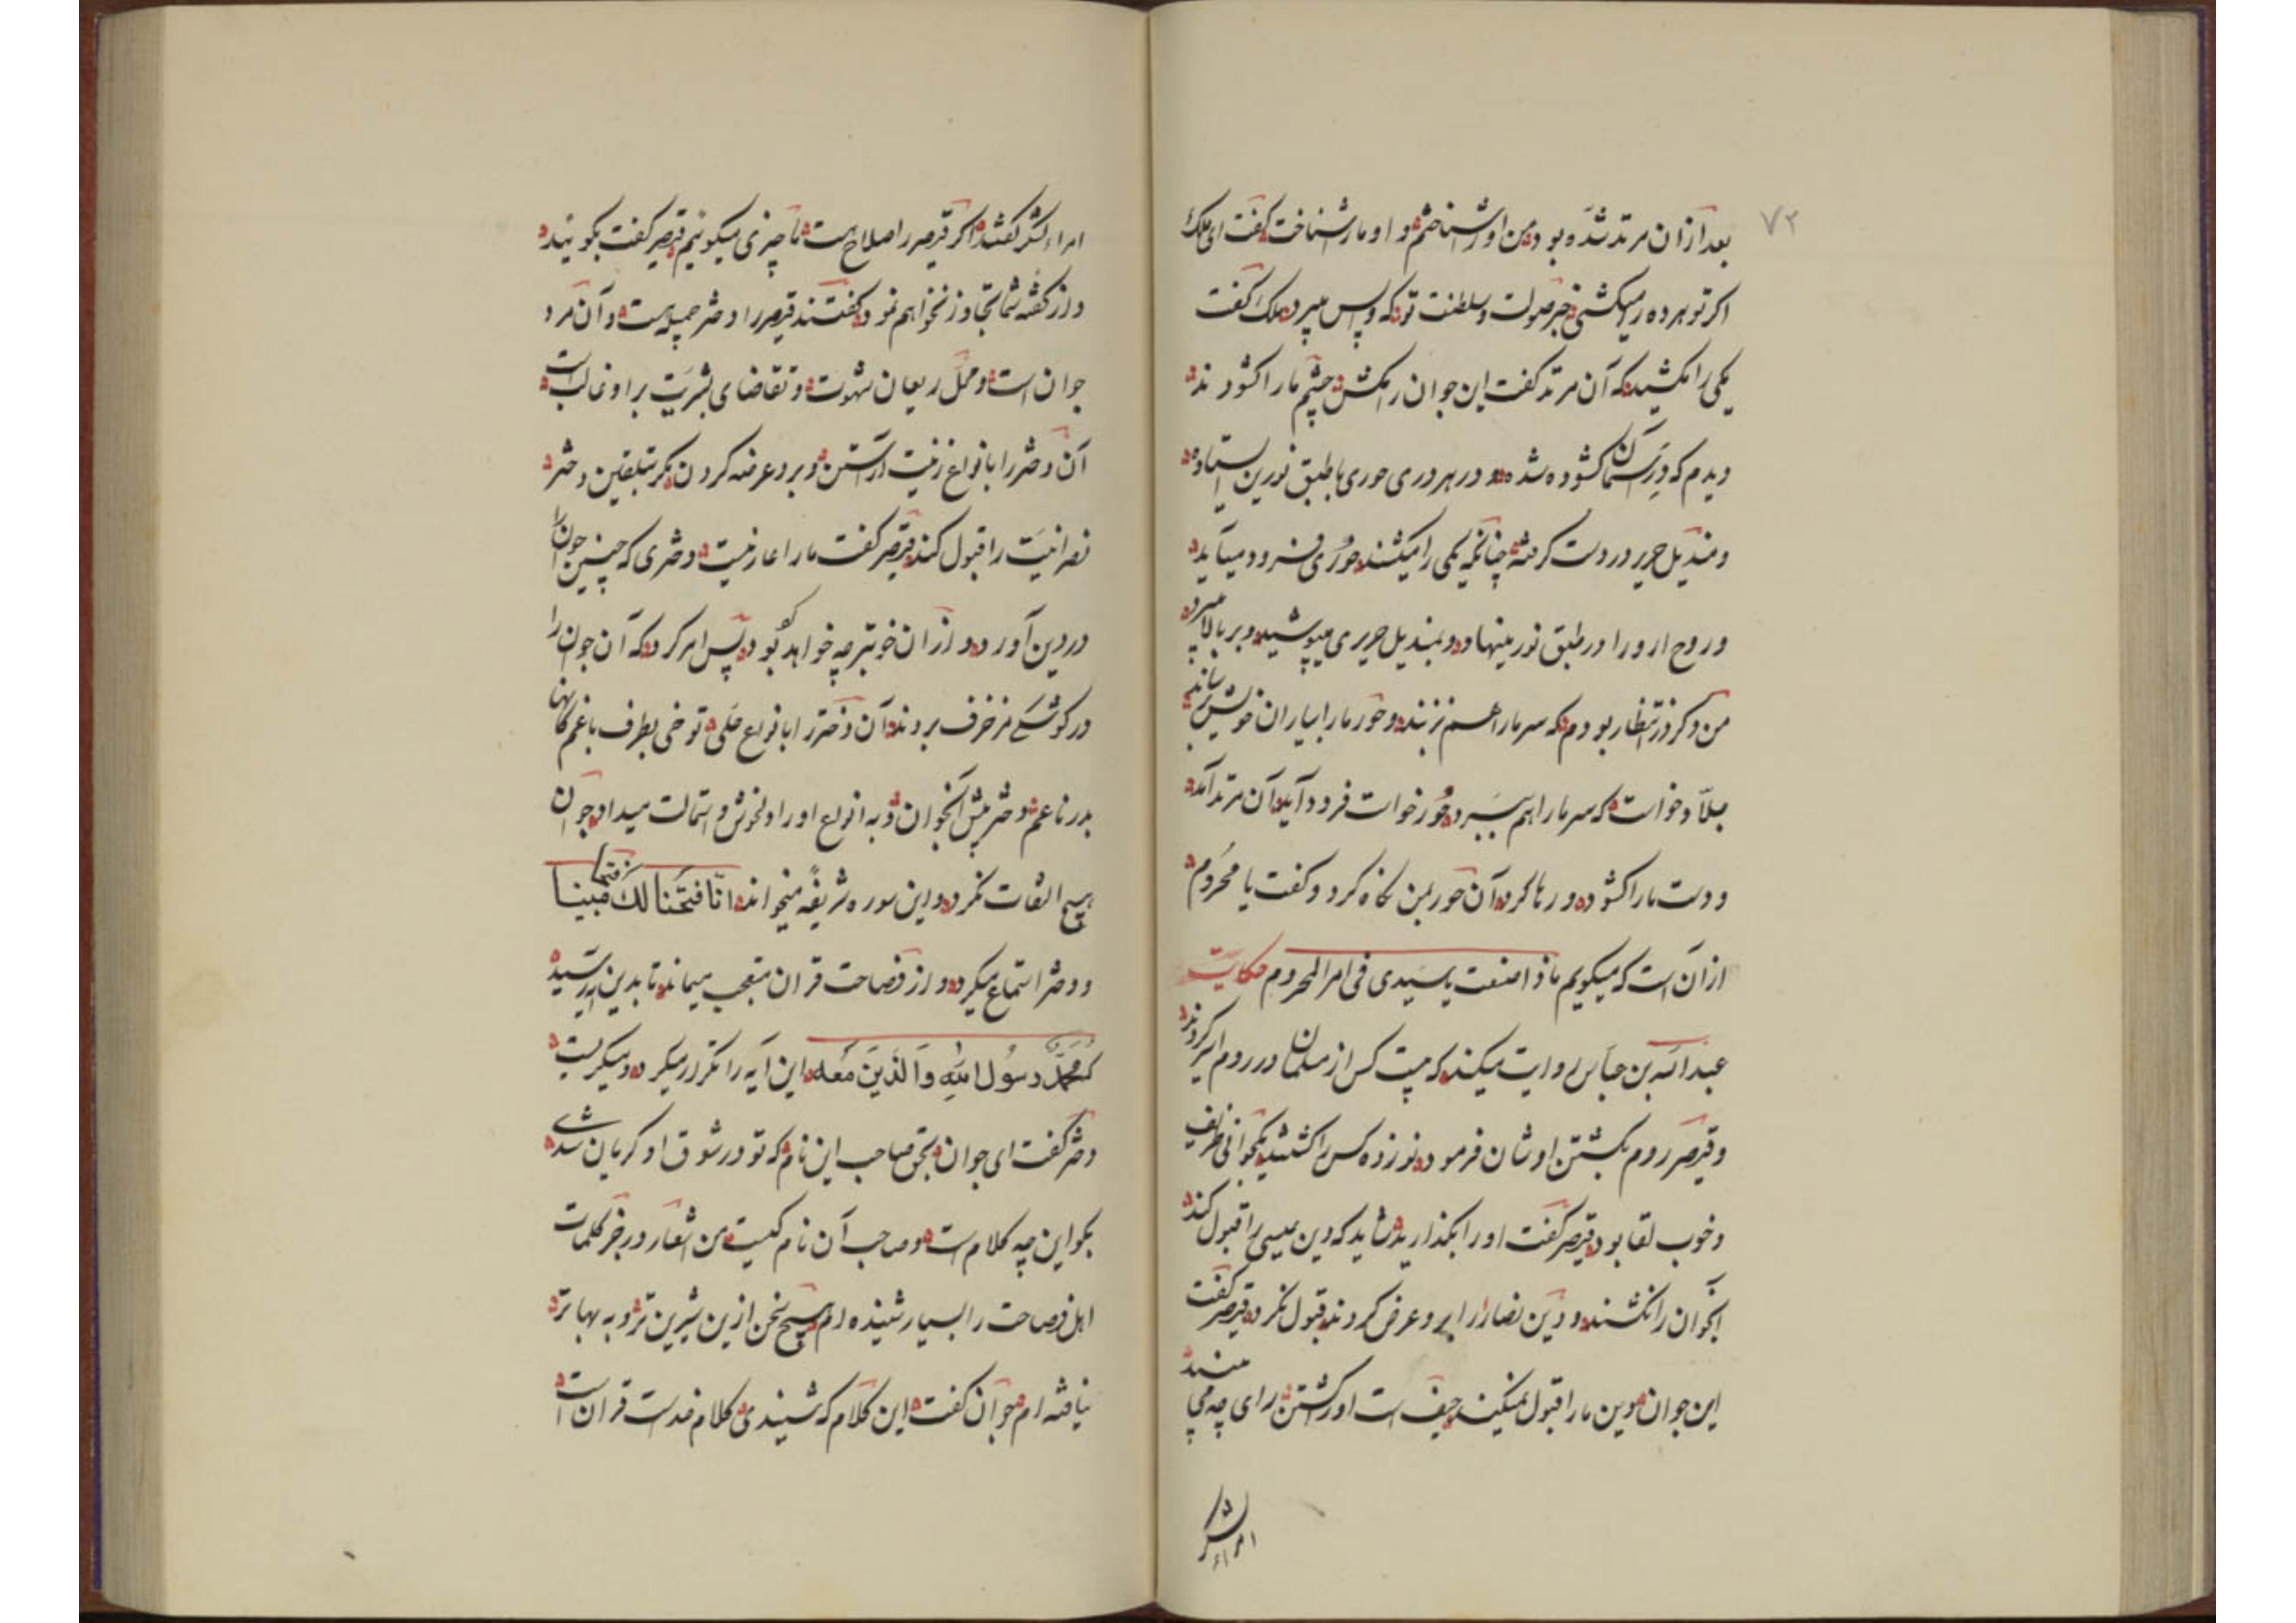 ۷۲
بعد ازان مرتد شده بود من او را شناختم و او ما را شناخت گفت ای ملک
اکر تو هر ده را میکشی خبر صولت و سلطنت تو که واپس میبرد ملک گفت
یکی را مکشید که آن مرتد گفت این جوان را مکش چشم ما را کشودند
دیدم که در آسمان کشوده شده و در هر دری حوری با طبق نورین ایستاده
و مندیل حریر در دست کرفته چنانکه یکی را میکشند حوری فرود میآید
و روح او را در طبق نور مینهاد و بمندیل حریری میپوشید و بر بالا میبرد
من در انتظار بودم که سر ما را هم بزنند و حور ما را بیاران خویش رساند
جلاد خواست که سر ما را هم ببرد حور خواست فرود آید آن مرتد آمد
و دست ما را کشود و رها کرد آن حور بمن نکاه کرد و کفت یا محروم
از آن است که میکویم ماذا صنعت یا سیدی فی امر المحروم حکایت
عبدالله بن عباس روایت میکند که بیست کس از مسلمانان در روم اسیر کردند
و قیصر روم بکشتن اوشان فرمود نوزده کس را کشتند یکجوانی ظریف
و خوب لقا بود قیصر گفت او را بگذارید شاید که دین عیسی را قبول کند
آنجوان را نکشتند و دین نصارا را برو عرض کردند قبول نکرد قیصر گفت
این جوان دین ما را قبول نمیکند حیف است او را کشتن رای چه می بینید
امراء لشکر
امراء لشکر گفتند اکر قیصر را اصلاح هست ما چیزی میکوئیم قیصر گفت بکوئید
و از گفته شما تجاوز نخواهم نمود گفتند قیصر را دختر جمیله است و آن مرد
جوان است و محل ریعان شهوت و تقاضای بشریت بر او غالب است
آن دختر را بانواع زینت آراستن و برو عرضه کردن مگر بتلقین دختر
نصرانیت را قبول کند قیصر گفت ما را عار نیست دختری که چنین جوان را
در دین آورد و از ان خوبتر چه خواهد بود پس امر کرد که آن جوان را
در کوشک مزخرف بردند آن دختر را بانواع حلی
هیچ التفات نکرد و این سوره شریفه میخواند انا فتحنا لک فتحا مبینا
و دختر استماع میکرد و از فصاحت قران متعجب میماند تا بدین آیه رسید
که محمد رسول الله والذین معه این آیه را تکرار میکرد و میکریست
دختر گفت ای جوان بحق صاحب این نام که تو در شوق او کریان شدی
بکو این چه کلام است و صاحب آن نام کیست من اشعار و رجز کلمات
اهل فصاحت را بسیار شنیده ام هیچ سخن ازین شیرین تر و به بها تر
نیافته ام جوان گفت این کلام که شنیدی کلام خداست قران است